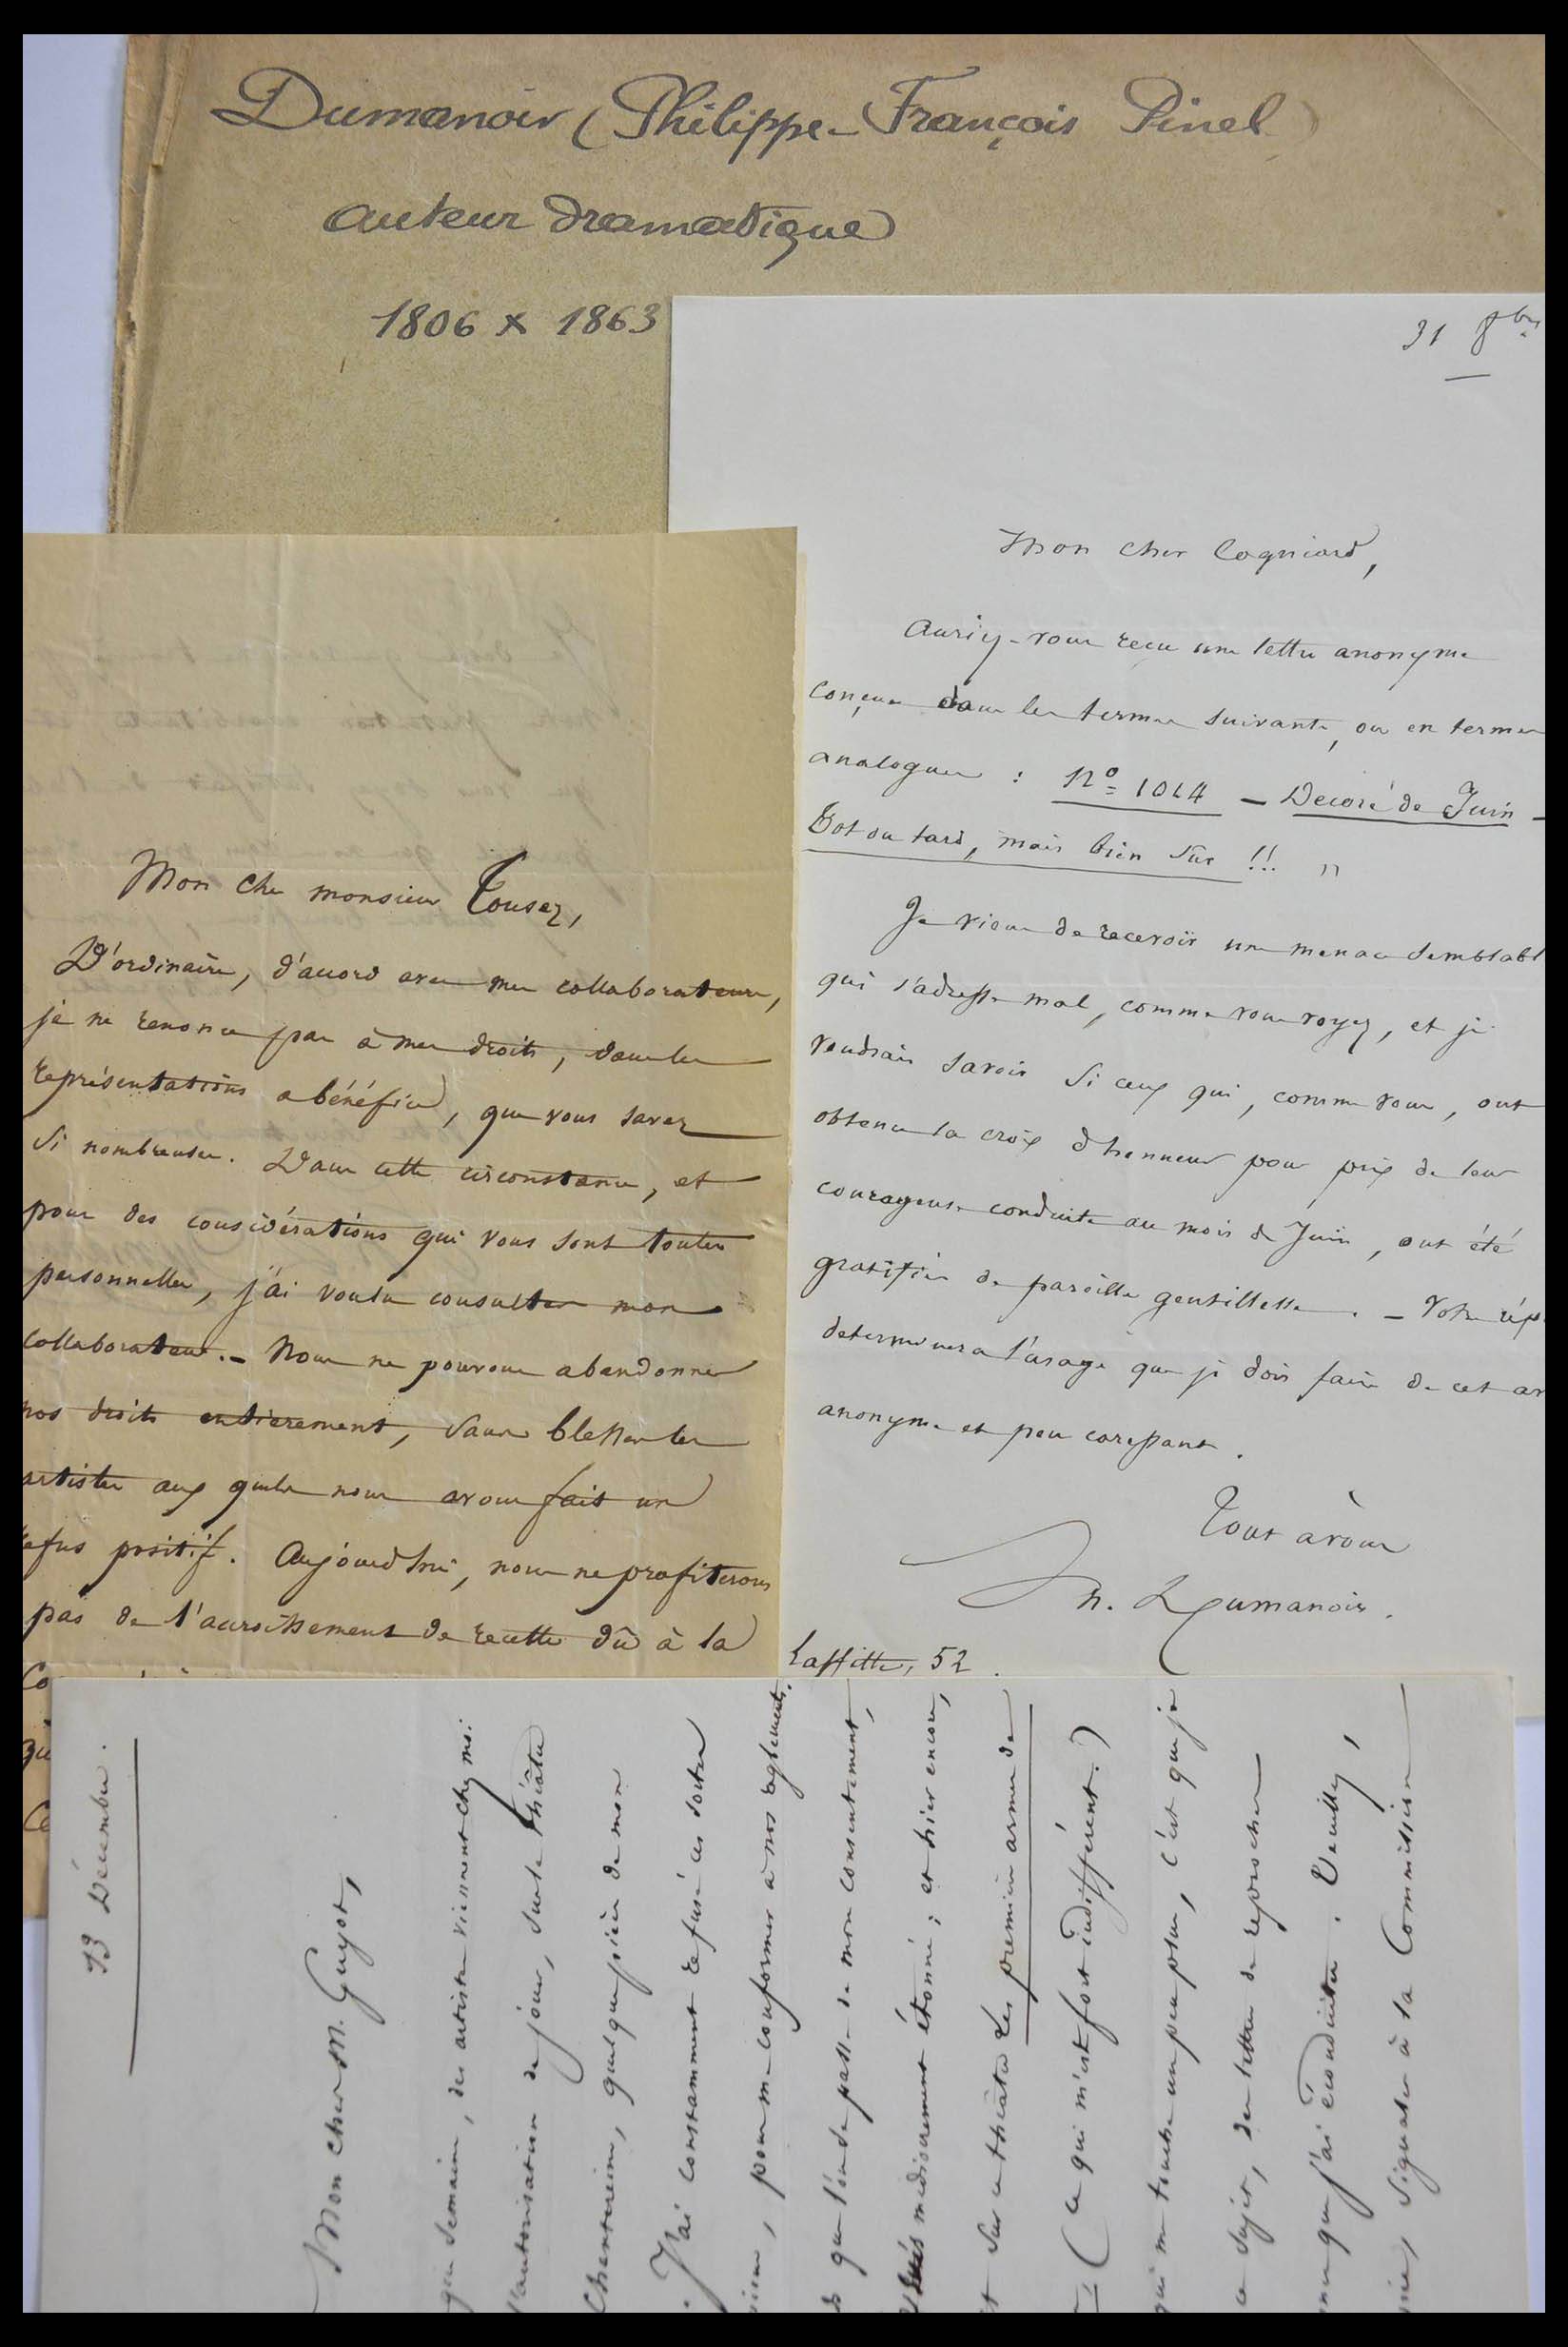 Dumanoir (Philippe-François Pinel)
auteur dramatique
1806 x 1863
31 8bre
Mon cher Cogniard,
Auriez-vous reçu une lettre anonyme
conçue dans les termes suivants, ou en termes
analogues : No 1014 — Décoré de Juin —
Tot ou tard, mais bien sûr !!! "
Je viens de recevoir une menace semblabl
qui s'adresse mal, comme vous voyez, et je
voudrais savoir si ceux qui, comme vous, ont
obtenu la croix d'honneur pour prix de leur
courageuse conduite au mois de Juin, ont été
gratifiés de pareille gentillesse. — Votre rép
déterminera l'usage que je dois faire de cet av
anonyme et peu
Tout à vous
Ph. Dumanoir.
Laffitte, 52.
Mon cher monsieur Tousez,
D'ordinaire, d'accord avec mes collaborateurs,
je ne renonce pas à mes droits, dans les
représentations à bénéfice, que vous savez
si nombreuses. Dans cette circonstance, et
pour des considérations qui vous sont toutes
personnelles, j'ai voulu consulter mon
collaborateur. — Nous ne pouvons abandonner
nos droits entièrement, sans blesser les
artistes aux quels nous avons fait un
refus positif. Aujourd'hui, nous ne profiterons
pas de l'accroissement de recette dû à la
Co
qu
Ce
13 Décembre.
Mon cher M. Guyot,
que semaine, des artistes viennent chez moi
l'autorisation de jouer, sur le théâtre
Chantereine, quelque pièce de mon
. J'ai constamment refusé ces sortes
, pour me conformer à nos règlements.
que l'on se passe de mon consentement,
médiocrement étonné ; et hier encore,
t sur ce théâtre Les premières armes de
(ce qui m'est fort indifférent.)
qui me touche un peu plus, c'est que je
ce sujet, des lettres de reproches
que j'ai éconduites. Veuillez,
, signaler à la Commission